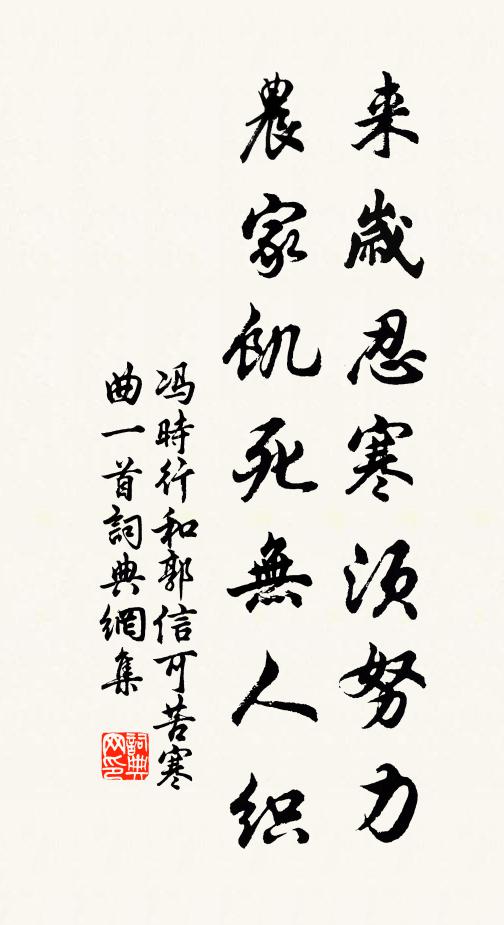 来歲忍寒須努力
農家飢死無人织
冯時行和郭信可苦寒
曲一首詞典網集
詞典
网印